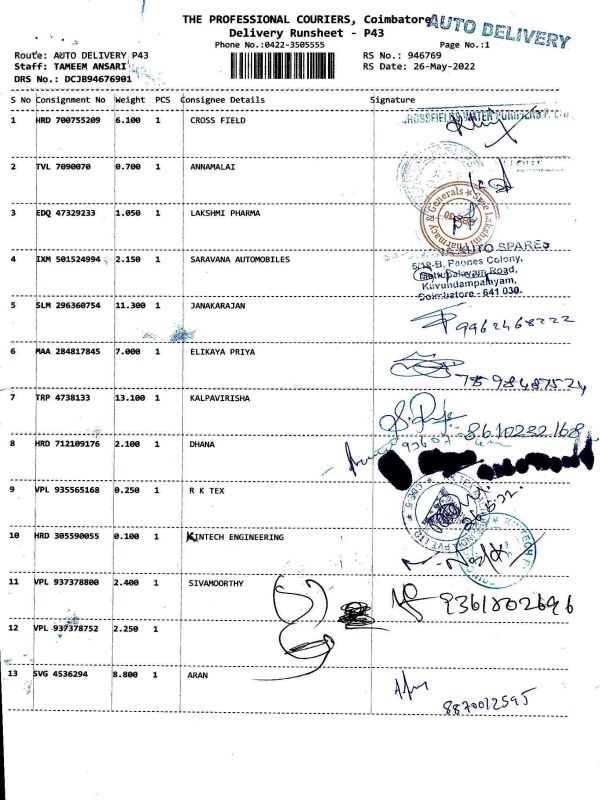 THE PROFESSIONAL COURIERS, Coimbatore
AUTO DELIVERY
Delivery Runsheet - P43
Phone No.:0422-3505555 Page No.:1
Route: AUTO DELIVERY P43 RS No.: 946769
Staff: TAMEEM ANSARI RS Date: 26-May-2022
DRS No.: DCJB94676901
S No Consignment No Weight PCS Consignee Details Signature
1 HRD 700755209 6.100 1 CROSS FIELD
2 TVL 7090070 0.700 1 ANNAMALAI
3 EDQ 47329233 1.050 1 LAKSHMI PHARMA
Sree Lakshmi Pharmacy & Generals
4 IXM 501524994 2.150 1 SARAVANA AUTOMOBILES
AUTO SPARES
5/18-B, Peones Colony,
Mettupalayam Road,
Kavundampalayam,
Coimbatore - 641 030.
5 SLM 296360754 11.300 1 JANAKARAJAN
9962468222
6 MAA 284817845 7.000 1 ELIKAYA PRIYA
7598487524
7 TRP 4738133 13.100 1 KALPAVIRISHA
8610232168
8 HRD 712109176 2.100 1 DHANA
9 VPL 935565168 0.250 1 R K TEX
26.5.22
10 HRD 305590055 0.100 1 KINTECH ENGINEERING
11 VPL 937378800 2.400 1 SIVAMOORTHY
9361802696
12 VPL 937378752 2.250 1
13 SVG 4536294 8.800 1 ARAN
8870012595